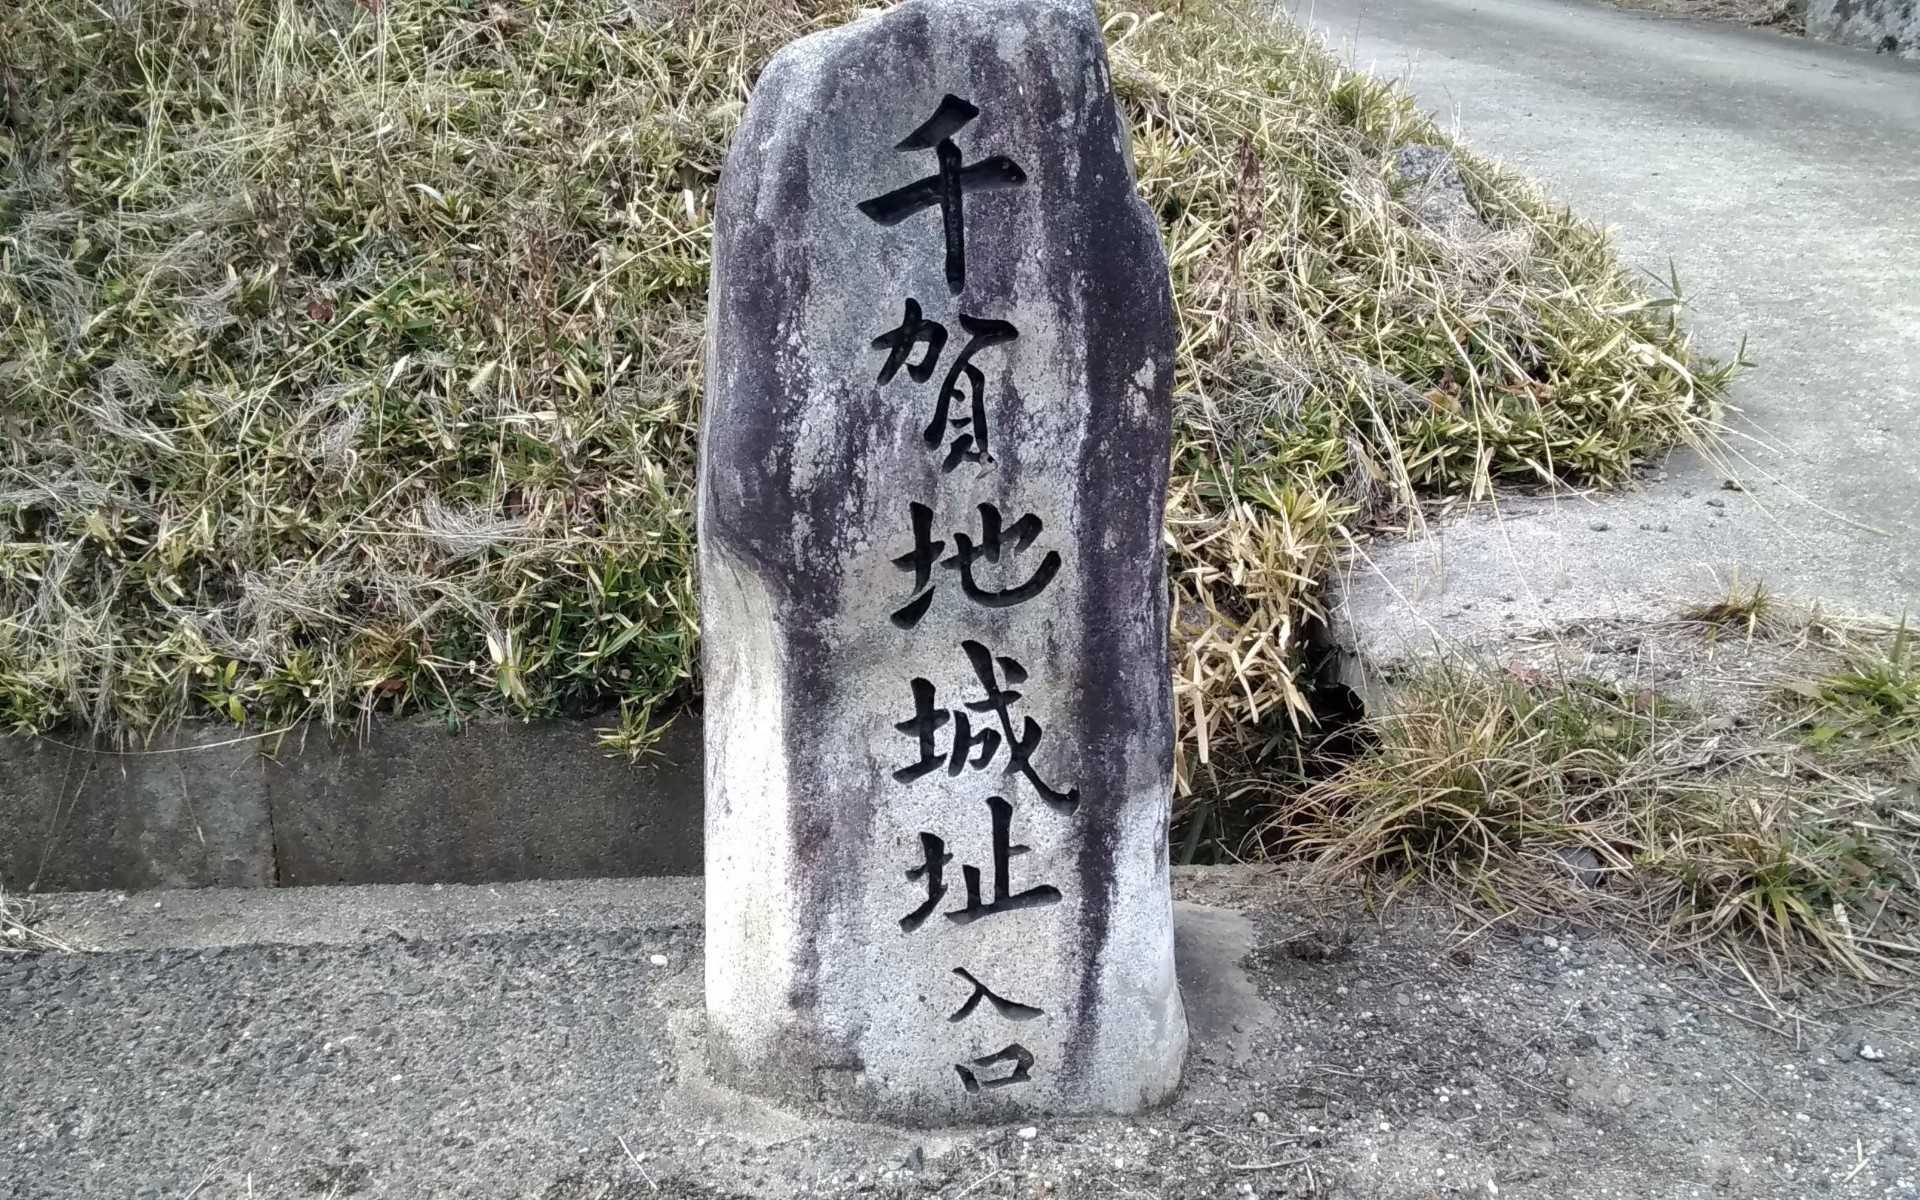 千賀地城址入口